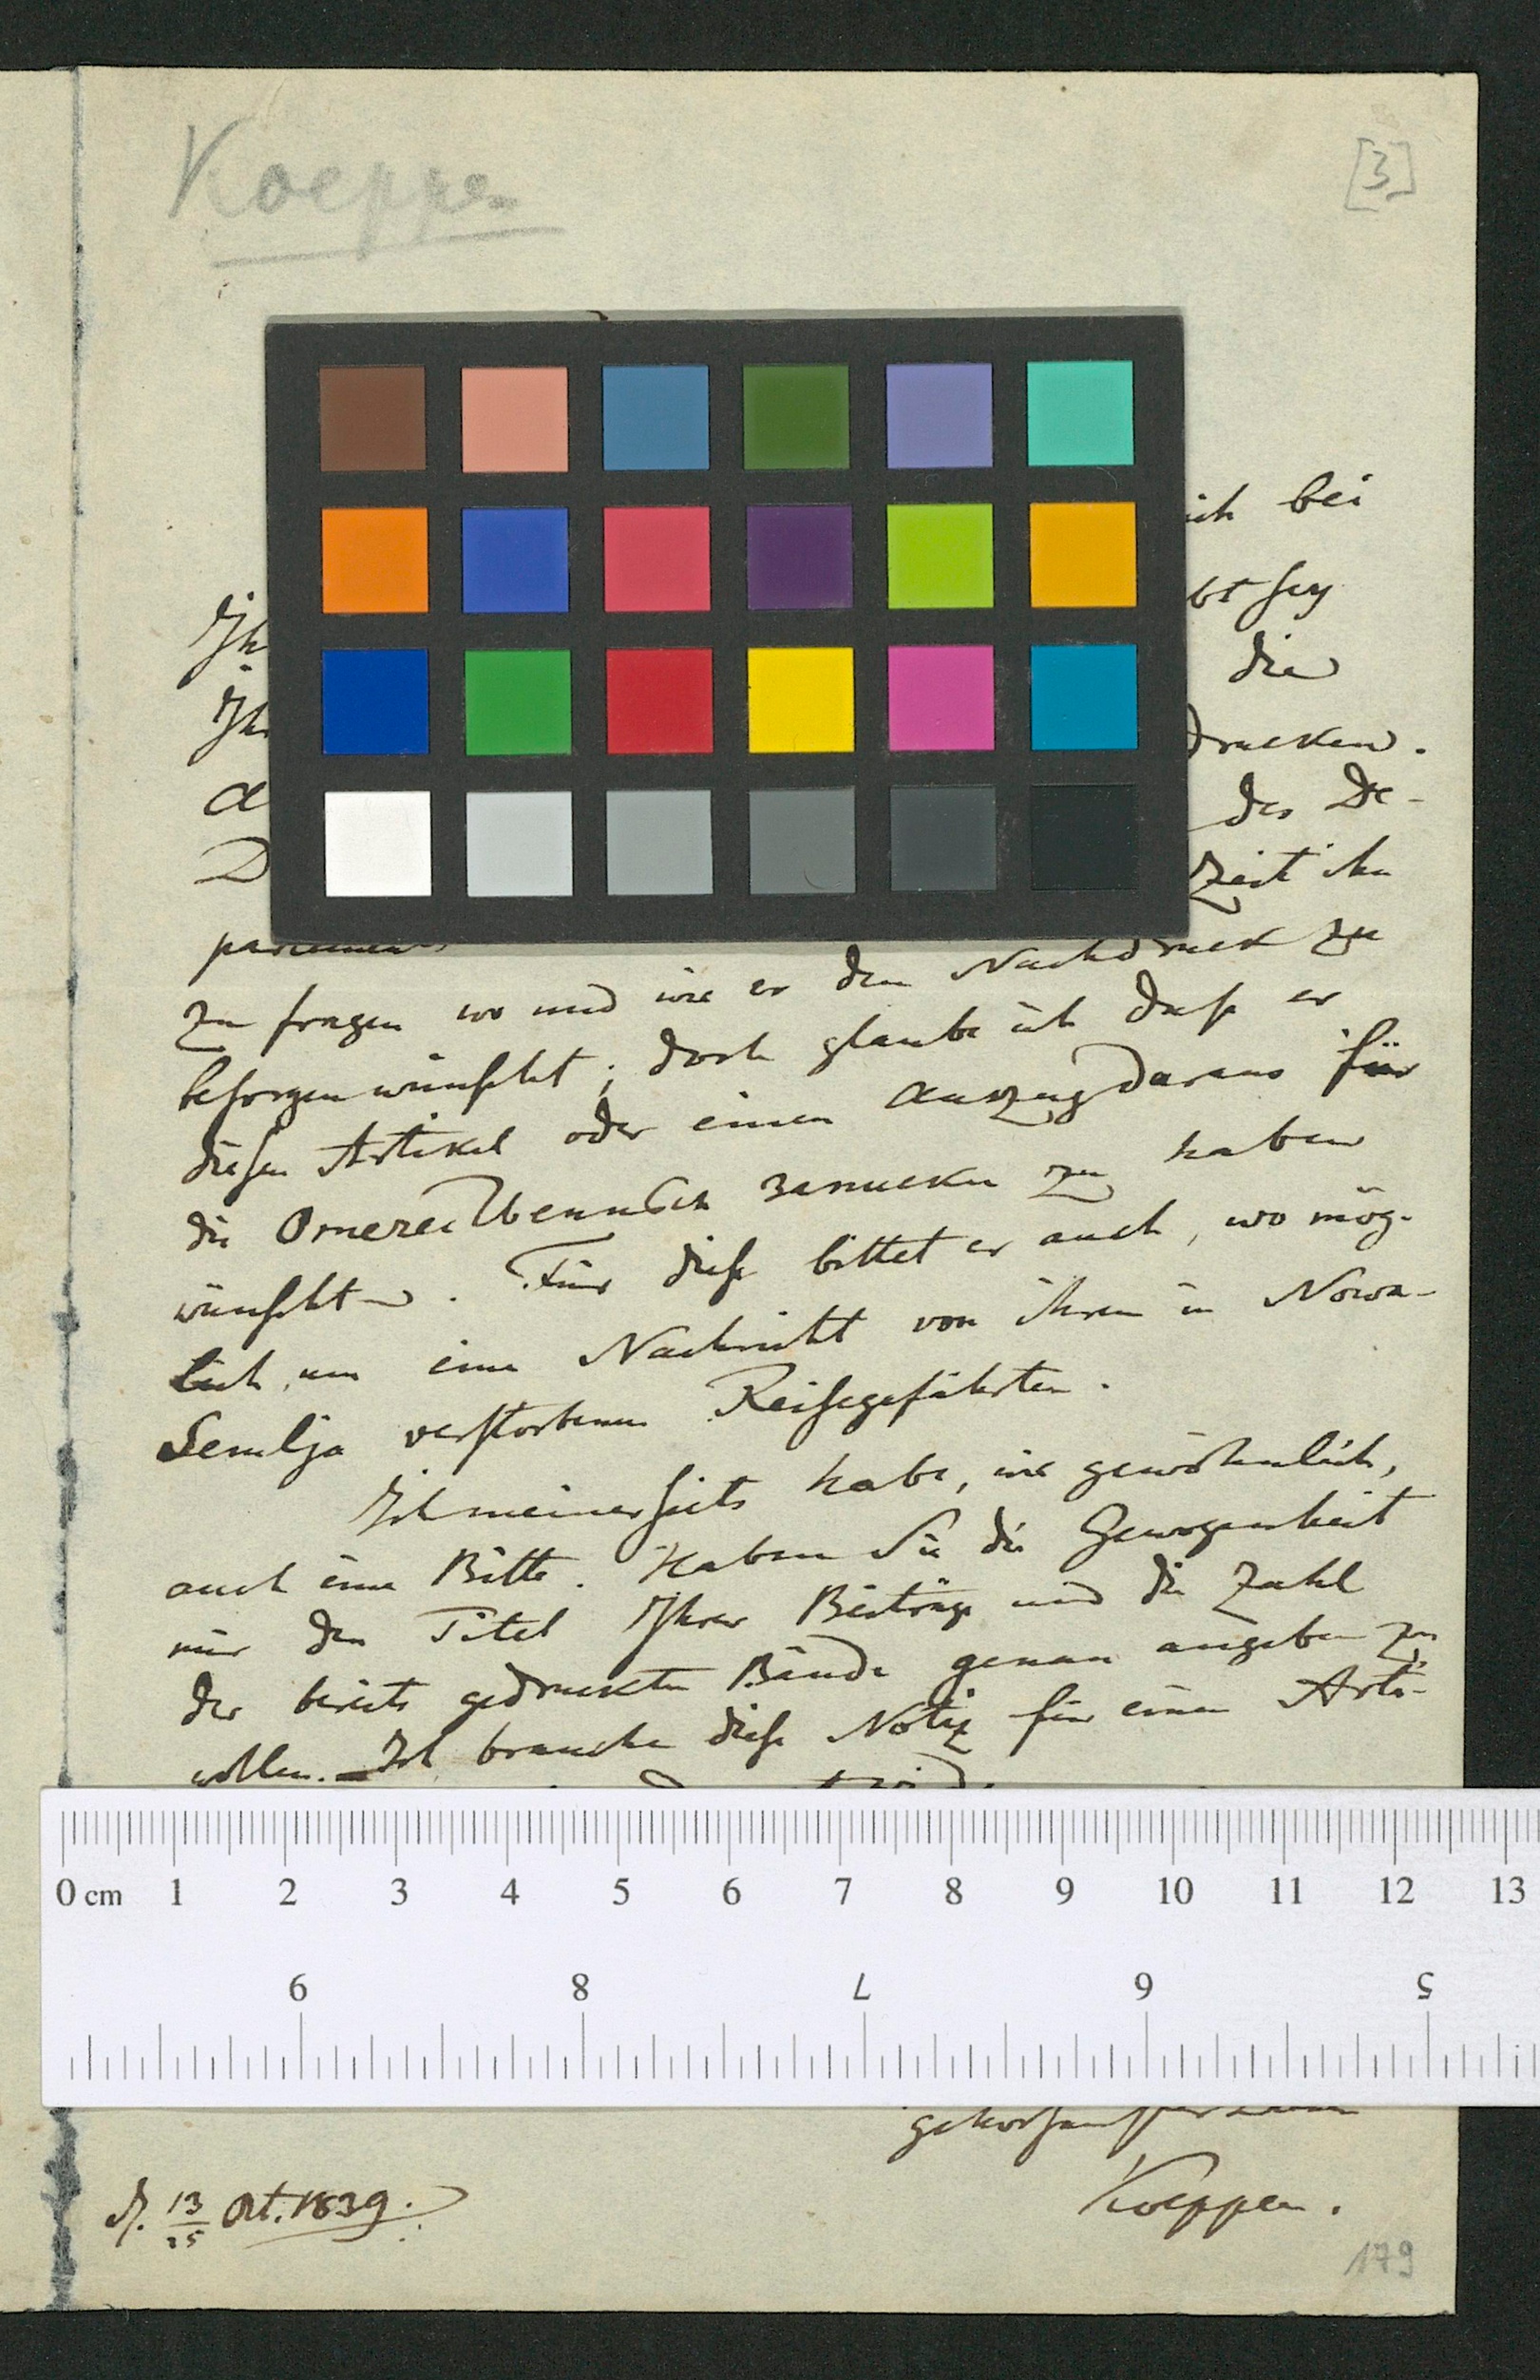 Koeppen
[3]
ich bei
Ih bt sey
Ih die
A drucken.
D des De-
Zeit ihn
zu fragen wo und wie er den Nachdruck zu
besorgen wünscht; doch glaube ich dass er
diesen Artikel oder einen Auszug daraus für
die Отечественныя записки zu haben
wünscht. Für diese bittet er auch, wo mög-
lich, um eine Nachricht von ihrem in Nowa-
Semlja verstorbenen Reisegefährten.
Ich meinerseits habe, wie gewöhnlich,
auch eine Bitte. Haben Sie die Gewogenheit
mir den Titel Ihrer Beiträge und die Zahl
der bereits gedruckten Bände genau angeben zu
wollen. Ich brauche diese Notiz für einen Arti-
0 cm 1 2 3 4 5 6 7 8 9 10 11 12 13
9 8 7 6 5
Koeppen.
d. 13/25 Oct. 1839.
179